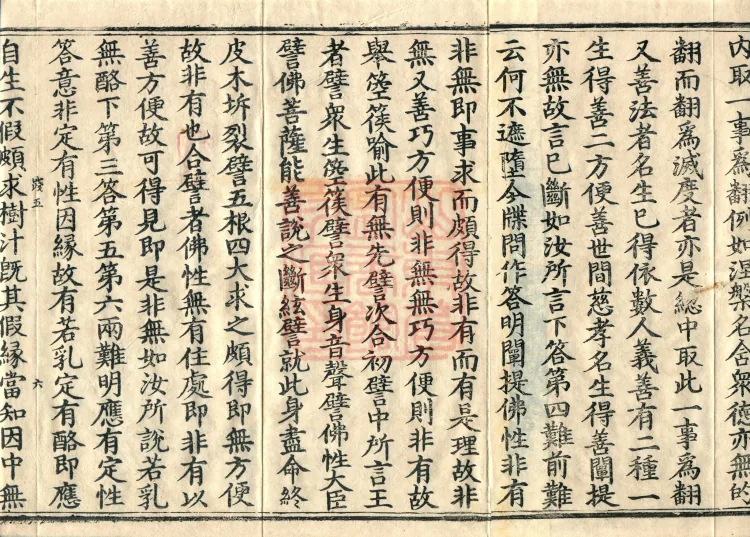 内取一事為翻例如涅槃名含衆德亦無的
翻而翻為滅度者亦是緫中取此一事為翻
又善法者名生已得依數人義善有二種一
生得善二方便善世間慈孝名生得善闡提
亦無故言已斷如汝所言下答第四難前難
云何不遮墮今牒問作答明闡提佛性非有
非無即事求而頗得故非有而有是理故非
無又善巧方便則非無無巧方便則非有故
舉箜篌喻此有無先譬次合初譬中所言王
者譬衆生箜篌譬衆生身音聲譬佛性大臣
譬佛菩薩能善說之斷絃譬就此身盡命終
皮木坼裂譬五根四大求之頗得即無方便
故非有也合譬者佛性無有住處即非有以
善方便故可得見即是非無如汝所說若乳
無酪下第三答第五第六兩難明應有定性
答意非定有性因縁故有若乳定有酪即應
六
自生不假頗求樹汁旣其假縁當知因中無